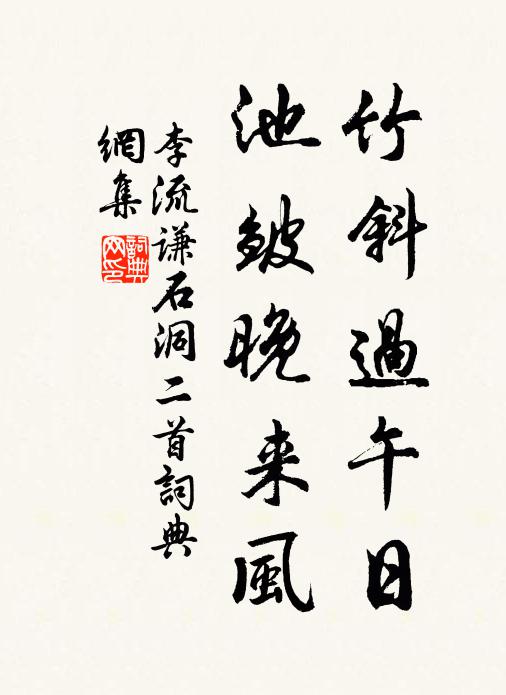 竹斜過午日
池皴晚来風
李流谦石洞二首詞典
網集
詞典网印